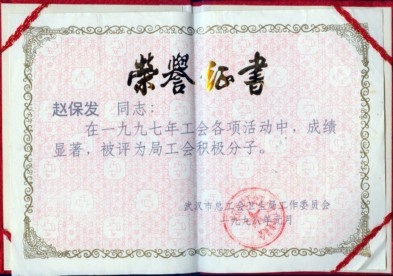 荣誉证书
赵保发 同志：
在一九九七年工会各项活动中，成绩
显著，被评为局工会积极分子。
武汉市总工会卫生局工作委员会
一九九八年元月